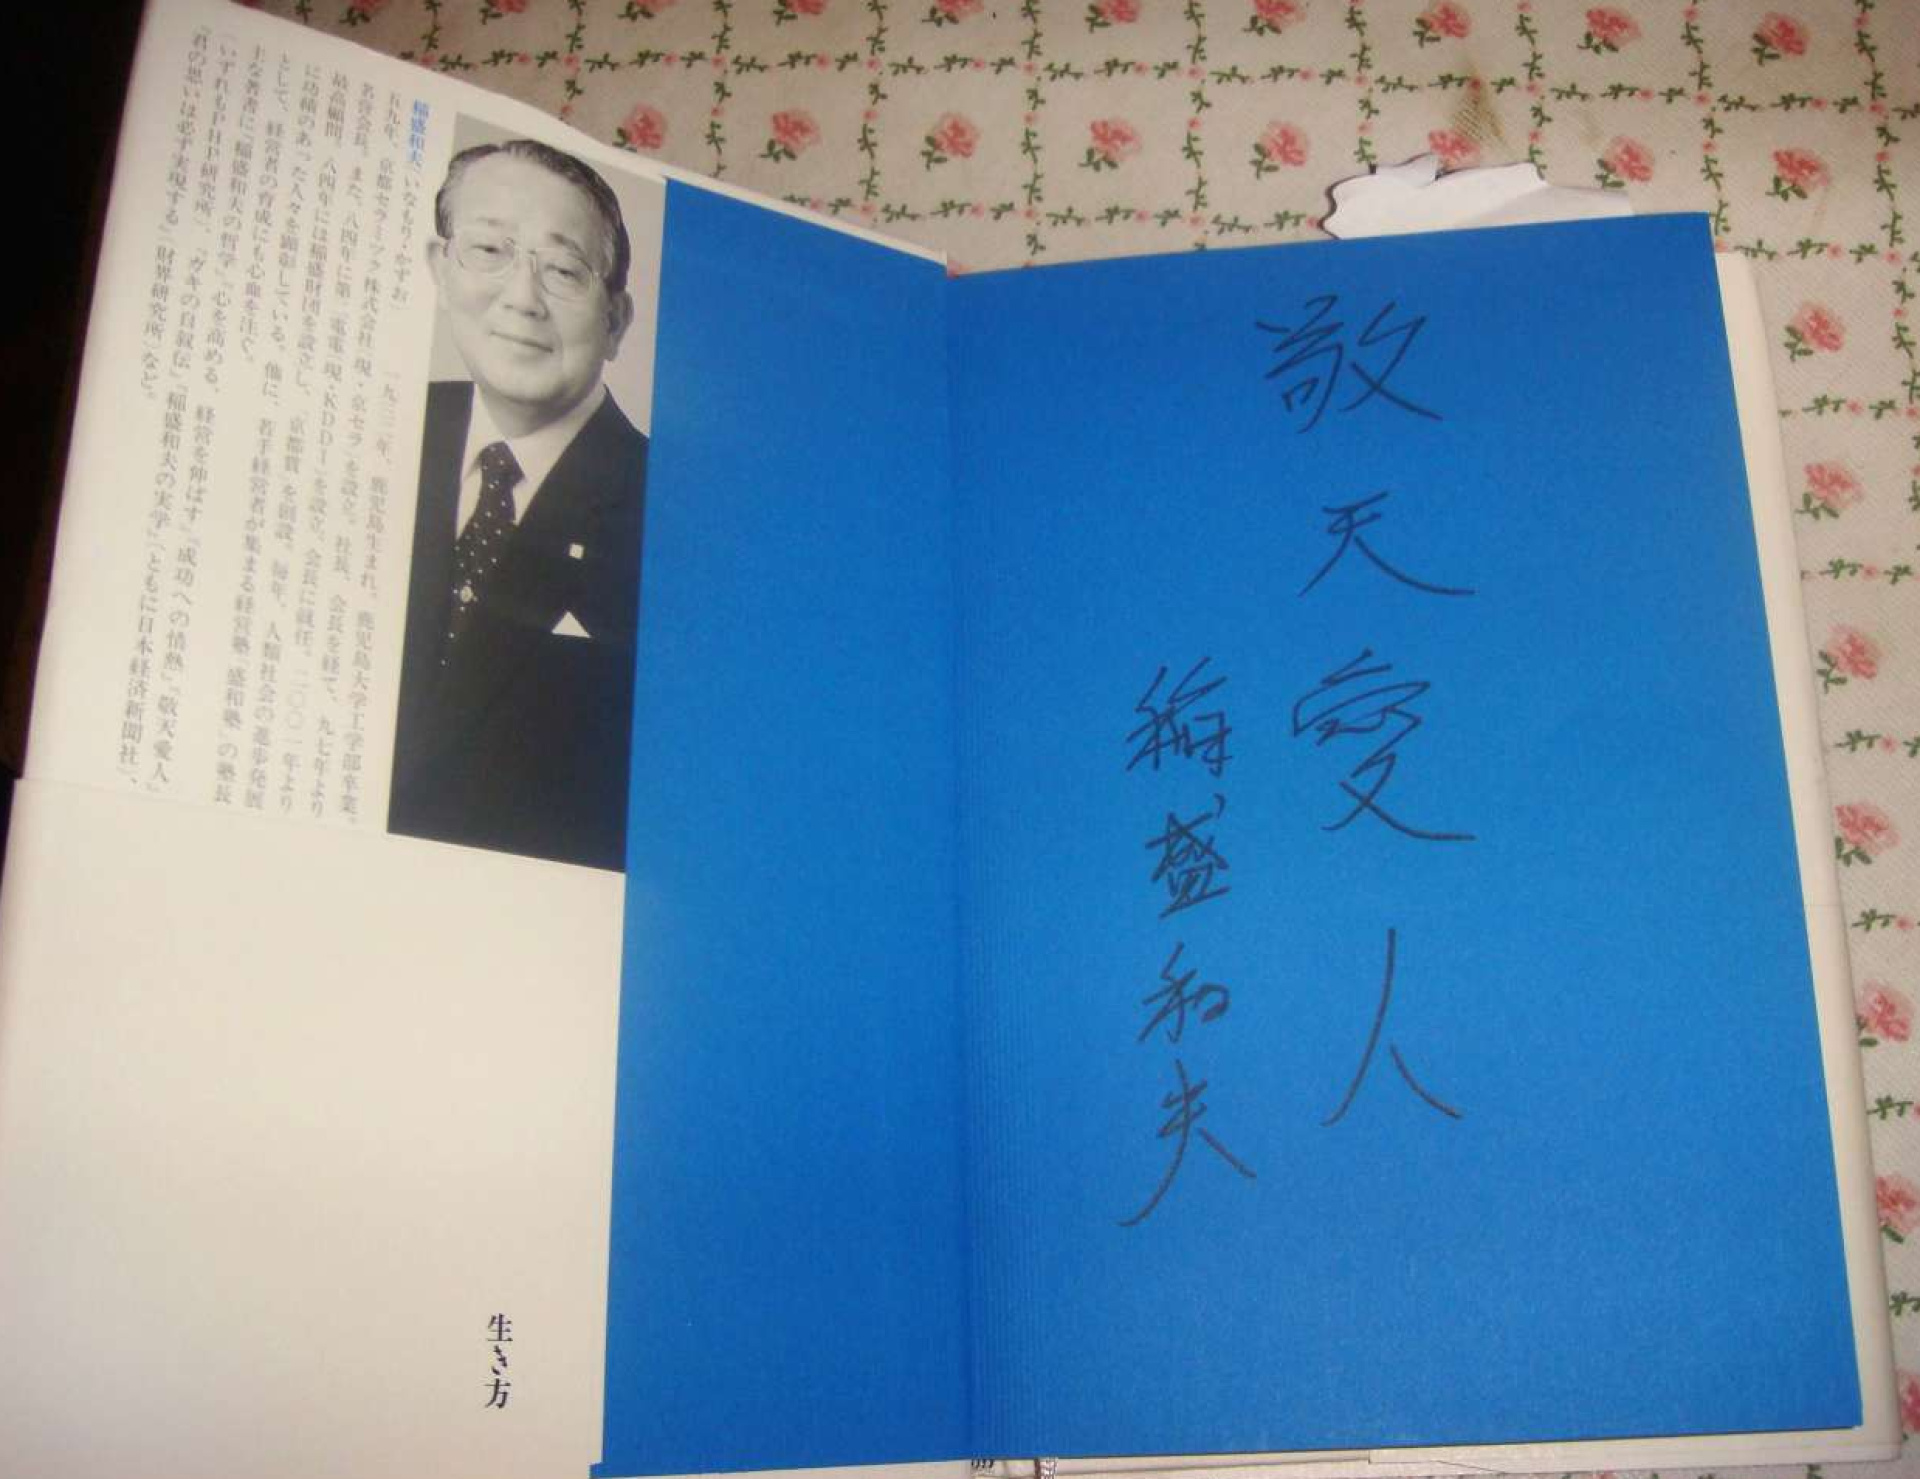 稲盛和夫(いなもり・かずお)
一九三二年、鹿児島生まれ。鹿児島大学工学部卒業。
五九年、京都セラミック株式会社(現・京セラ)を設立。社長、会長を経て、九七年より
名誉会長。また、八四年に第二電電(現・KDDI)を設立、会長に就任。二〇〇一年より
最高顧問。八四年には稲盛財団を設立し、「京都賞」を創設。毎年、人類社会の進歩発展
に功績のあった人々を顕彰している。他に、若手経営者が集まる経営塾「盛和塾」の塾長
として、経営者の育成にも心血を注ぐ。
主な著書に『稲盛和夫の哲学』『心を高める、経営を伸ばす』『成功への情熱』『敬天愛人』
(いずれもPHP研究所)、『ガキの自叙伝』『稲盛和夫の実学』(ともに日本経済新聞社)、
『君の思いは必ず実現する』(財界研究所)など。
生き方
敬天愛人
稲盛和夫